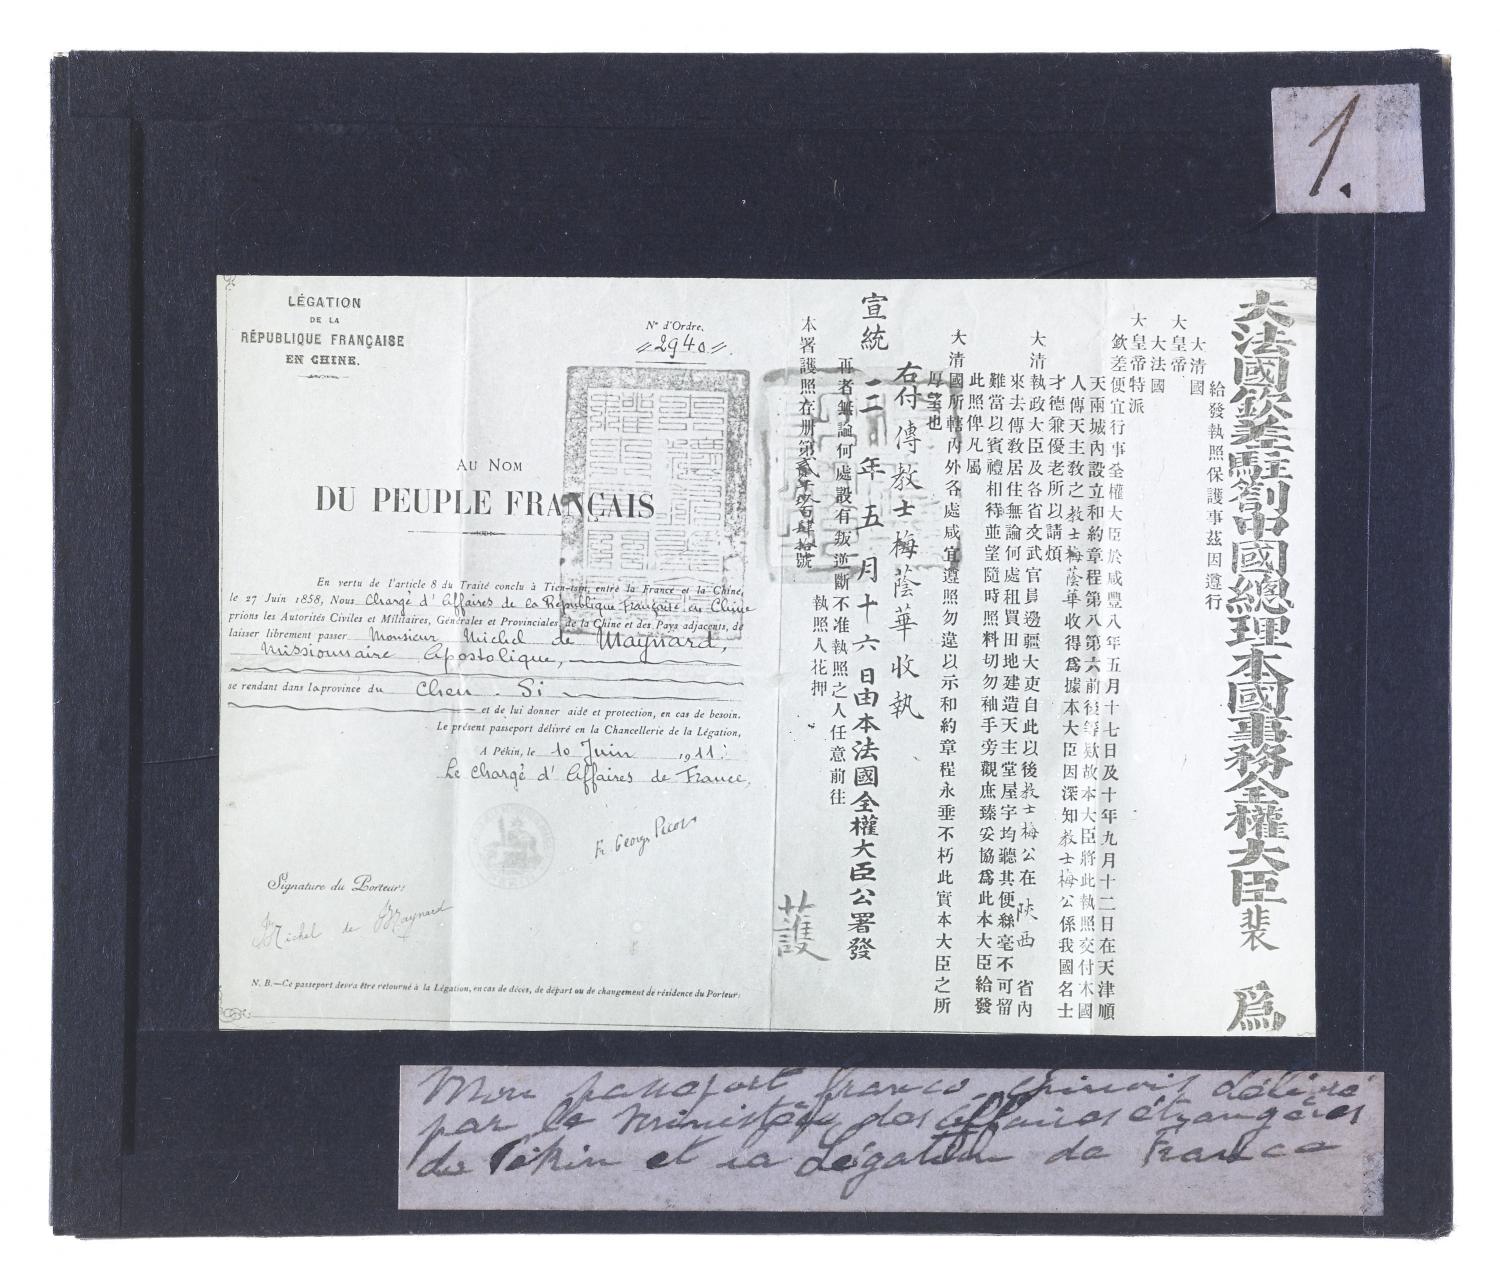 1.
LÉGATION
DE LA
RÉPUBLIQUE FRANÇAISE
EN CHINE.
N° d'Ordre.
2940
AU NOM
DU PEUPLE FRANÇAIS
En vertu de l'article 8 du Traité conclu à Tien-tsin, entre la France et la Chine,
le 27 Juin 1858, Nous Chargé d'Affaires de la République Française en Chine
prions les Autorités Civiles et Militaires, Générales et Provinciales de la Chine et des Pays adjacents, de
laisser librement passer Monsieur Michel de Maynard,
Missionnaire Apostolique,
se rendant dans la province du Chen-Si
et de lui donner aide et protection, en cas de besoin.
Le présent passeport délivré en la Chancellerie de la Légation,
A Pékin, le 10 Juin 1911.
Le Chargé d'Affaires de France,
Fr. Georges Picot
Signature du Porteur:
Michel de Maynard
N. B.—Ce passeport devra être retourné à la Légation, en cas de décès, de départ ou de changement de résidence du Porteur.
大法國欽差駐劄中國總理本國事務全權大臣裴 爲
給發執照保護事茲因遵行
大清國
大皇帝
大法國
大皇帝特派
欽差便宜行事全權大臣於咸豐八年五月十七日及十年九月十二日在天津順
天兩城內設立和約章程第八第六前後等欵故本大臣將此執照交付本國
人傳天主教之教士梅蔭華收得爲據本大臣因深知教士梅公係我國名士
才德兼優老所以請煩
大清執政大臣及各省文武官員邊疆大吏自此以後教士梅公在陝西省內
來去傳教居住無論何處租買田地建造天主堂屋宇均聽其便絲毫不可留
難當以賓禮相待並望隨時照料切勿袖手旁觀庶臻妥協爲此本大臣給發
此照俾凡屬
大清國所轄內外各處咸宜遵照勿違以示和約章程永垂不朽此實本大臣之所
厚望也
右付傳教士梅蔭華收執
宣統三年五月十六日由本法國全權大臣公署發
再者無論何處設有叛逆斷不准執照之人任意前往
執照人花押
本署護照存册第貳千玖百肆拾號
護
Mon passeport franco-chinois délivré
par le Ministère des affaires étrangères
de Pékin et la Légation de France